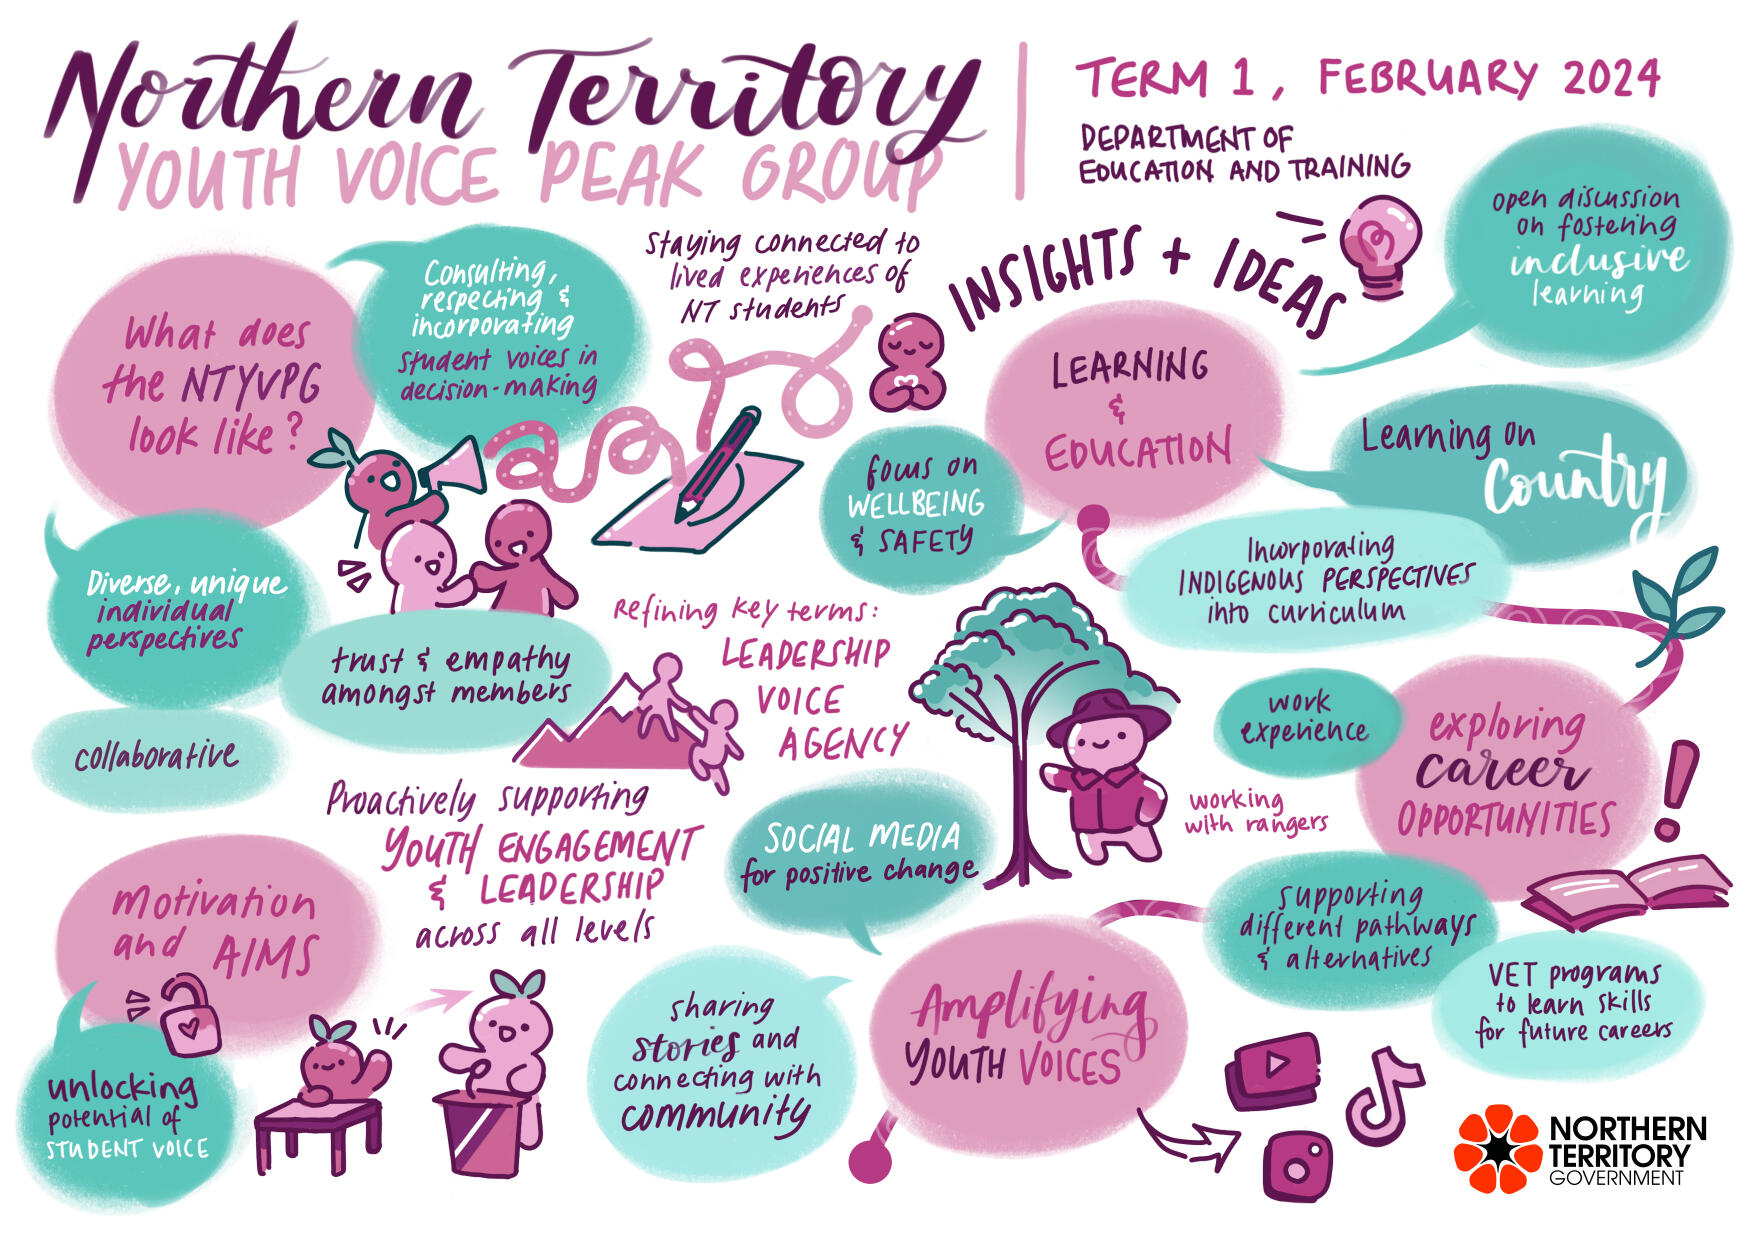 Northern Territory
YOUTH VOICE PEAK GROUP
TERM 1, FEBRUARY 2024
DEPARTMENT OF
EDUCATION AND TRAINING
What does
the NTYVPG
look like?
Consulting,
respecting &
incorporating
student voices in
decision-making
Staying connected to
lived experiences of
NT students
Diverse, unique
individual
perspectives
trust & empathy
amongst members
collaborative
Refining key terms:
LEADERSHIP
VOICE
AGENCY
Proactively supporting
YOUTH ENGAGEMENT
& LEADERSHIP
across all levels
Motivation
and AIMS
unlocking
potential of
STUDENT VOICE
INSIGHTS + IDEAS
LEARNING
&
EDUCATION
open discussion
on fostering
inclusive
learning
Learning on
Country
focus on
WELLBEING
& SAFETY
Incorporating
INDIGENOUS PERSPECTIVES
into curriculum
exploring
career
OPPORTUNITIES
work
experience
working
with rangers
supporting
different pathways
& alternatives
VET programs
to learn skills
for future careers
SOCIAL MEDIA
for positive change
Amplifying
YOUTH VOICES
sharing
stories and
connecting with
community
NORTHERN
TERRITORY
GOVERNMENT